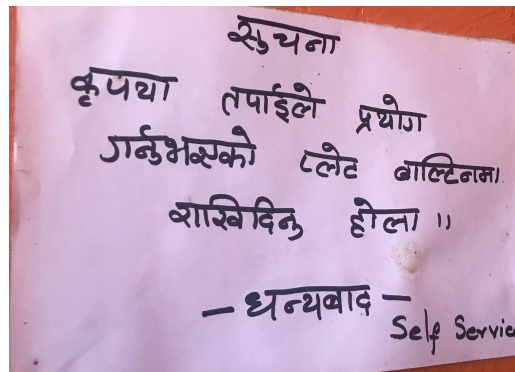 सुचना
कृपया तपाईले प्रयोग
गर्नुभएको प्लेट बाल्टिनमा
राखिदिनु होला ॥
— धन्यबाद —
Self Servic